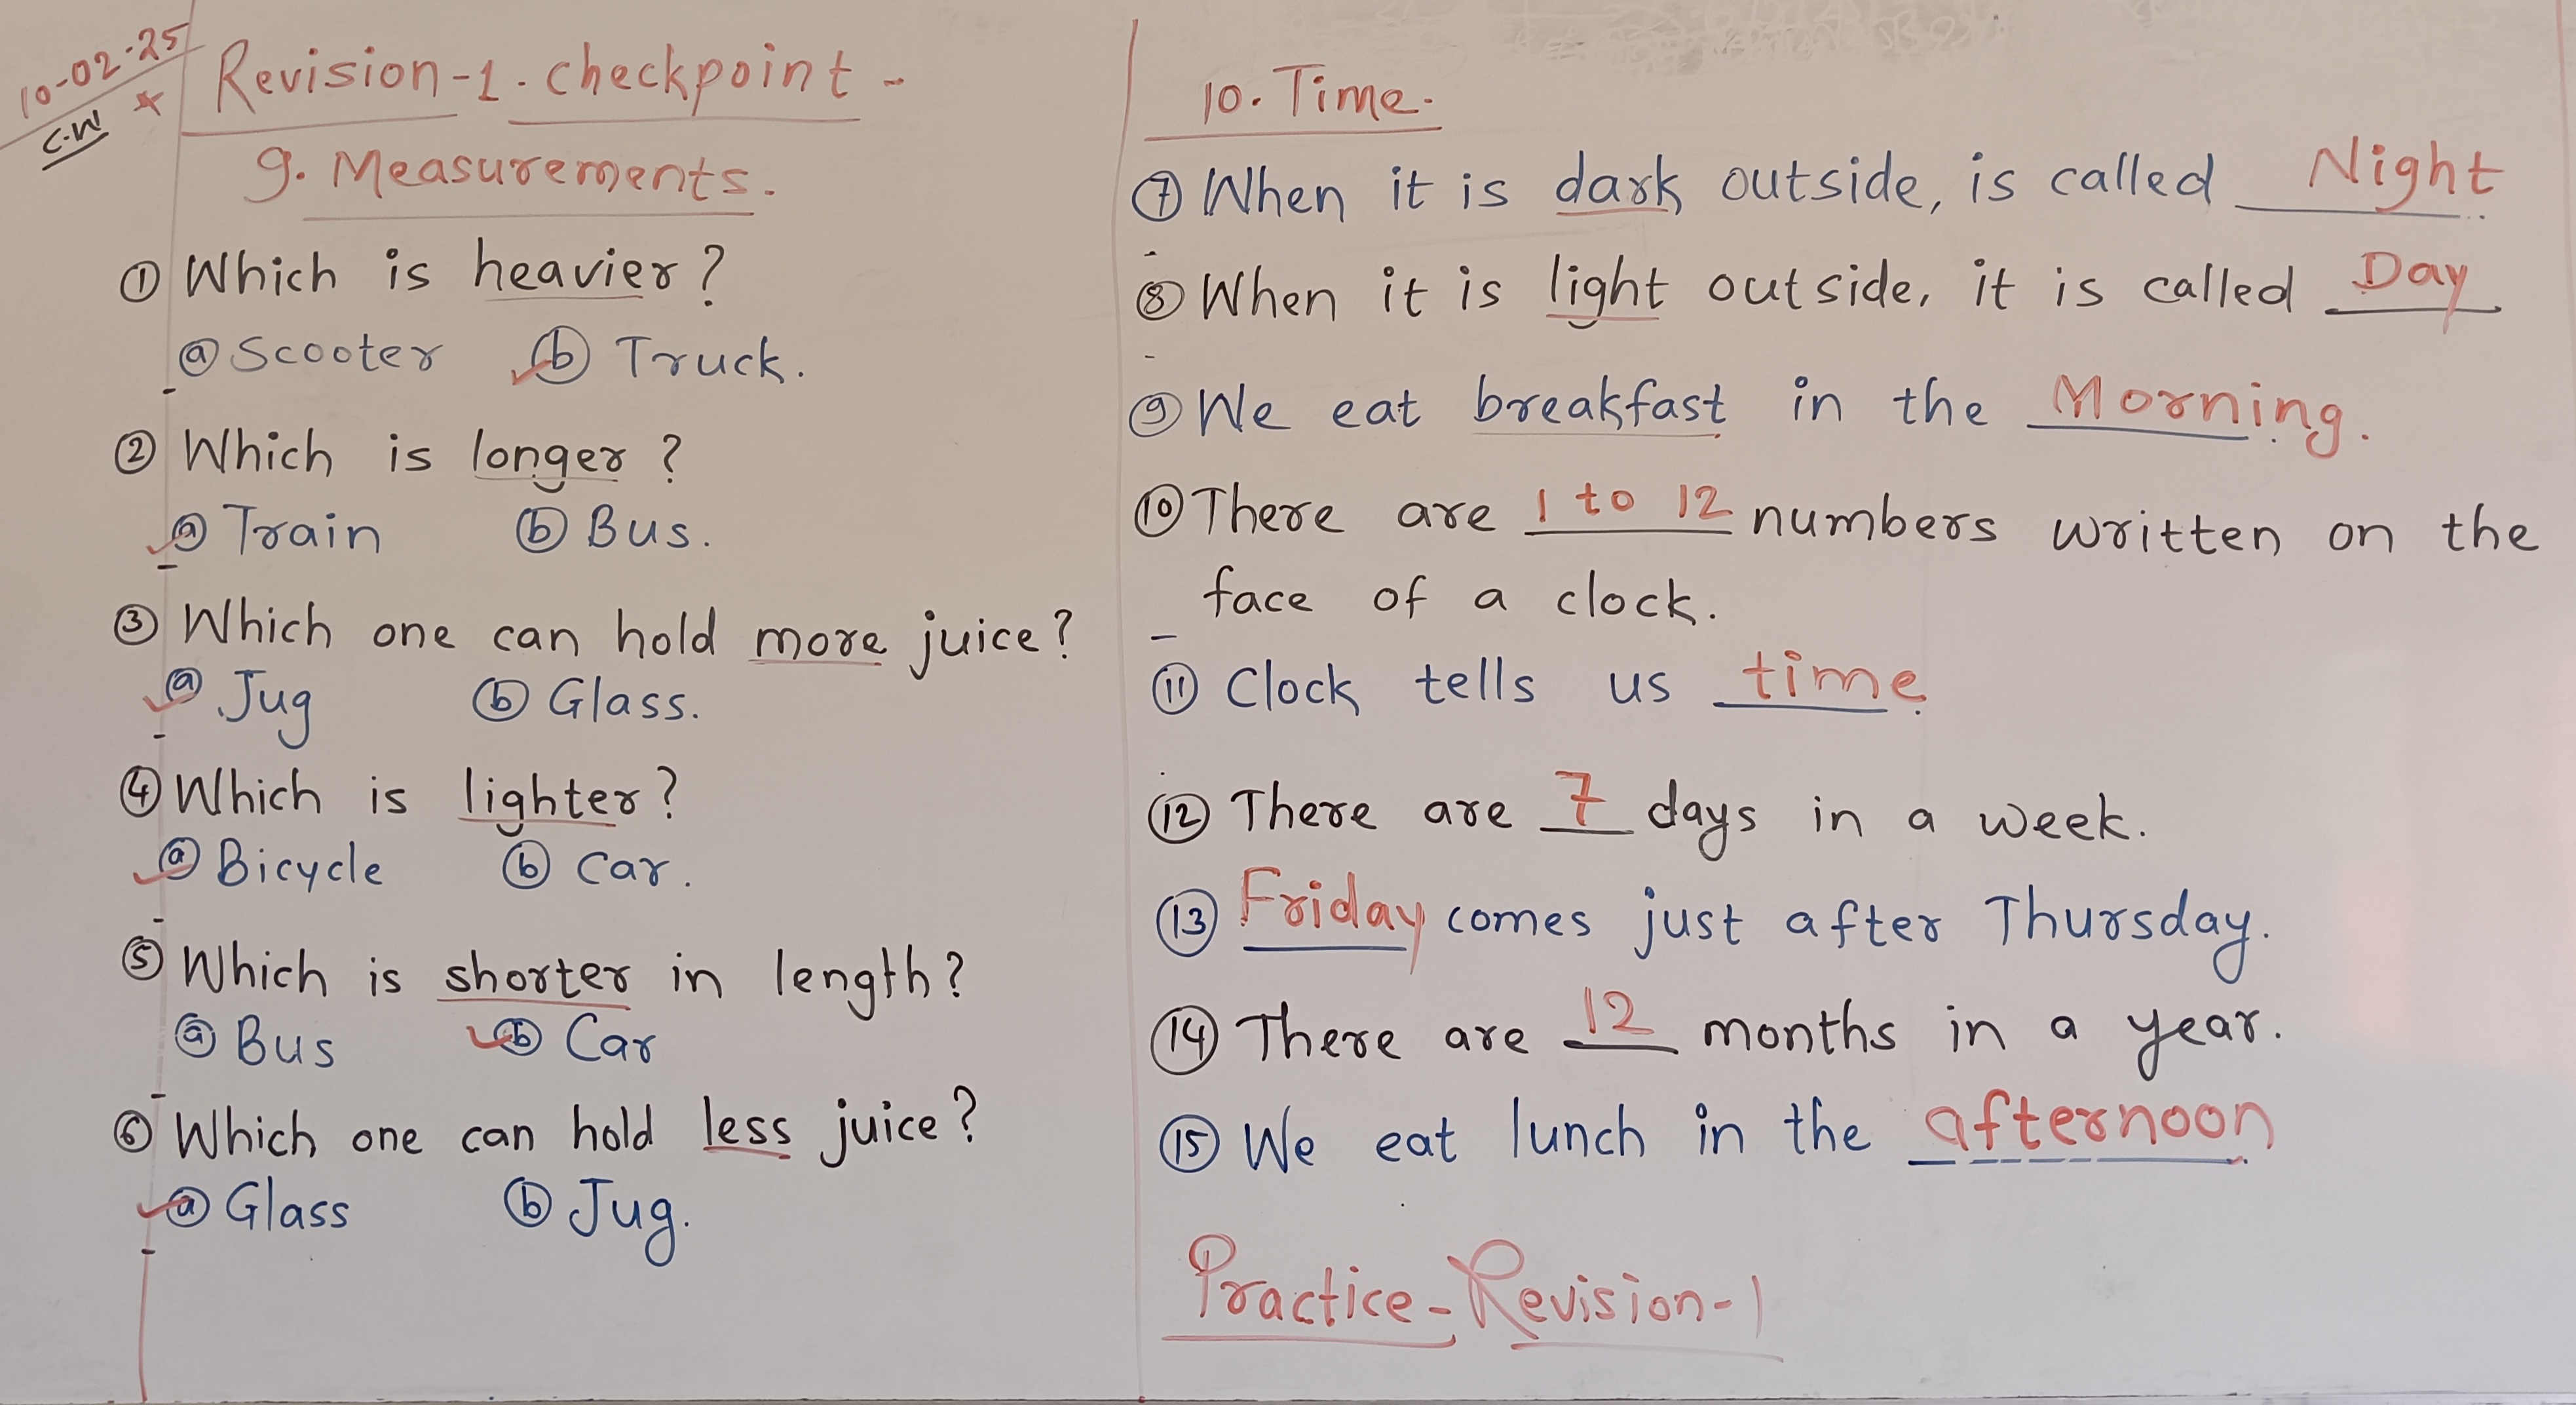 10-02-25
C.W
Revision-1. checkpoint -
9. Measurements.
① Which is heavier?
ⓐ Scooter ⓑ Truck.
② Which is longer?
ⓐ Train ⓑ Bus.
③ Which one can hold more juice?
ⓐ Jug ⓑ Glass.
④ Which is lighter?
ⓐ Bicycle ⓑ Car.
⑤ Which is shorter in length?
ⓐ Bus ⓑ Car
⑥ Which one can hold less juice?
ⓐ Glass ⓑ Jug.
10. Time.
⑦ When it is dark outside, is called Night
⑧ When it is light outside, it is called Day
⑨ We eat breakfast in the Morning.
⑩ There are 1 to 12 numbers written on the
face of a clock.
⑪ Clock tells us time.
⑫ There are 7 days in a week.
⑬ Friday comes just after Thursday.
⑭ There are 12 months in a year.
⑮ We eat lunch in the afternoon.
Practice-Revision-1